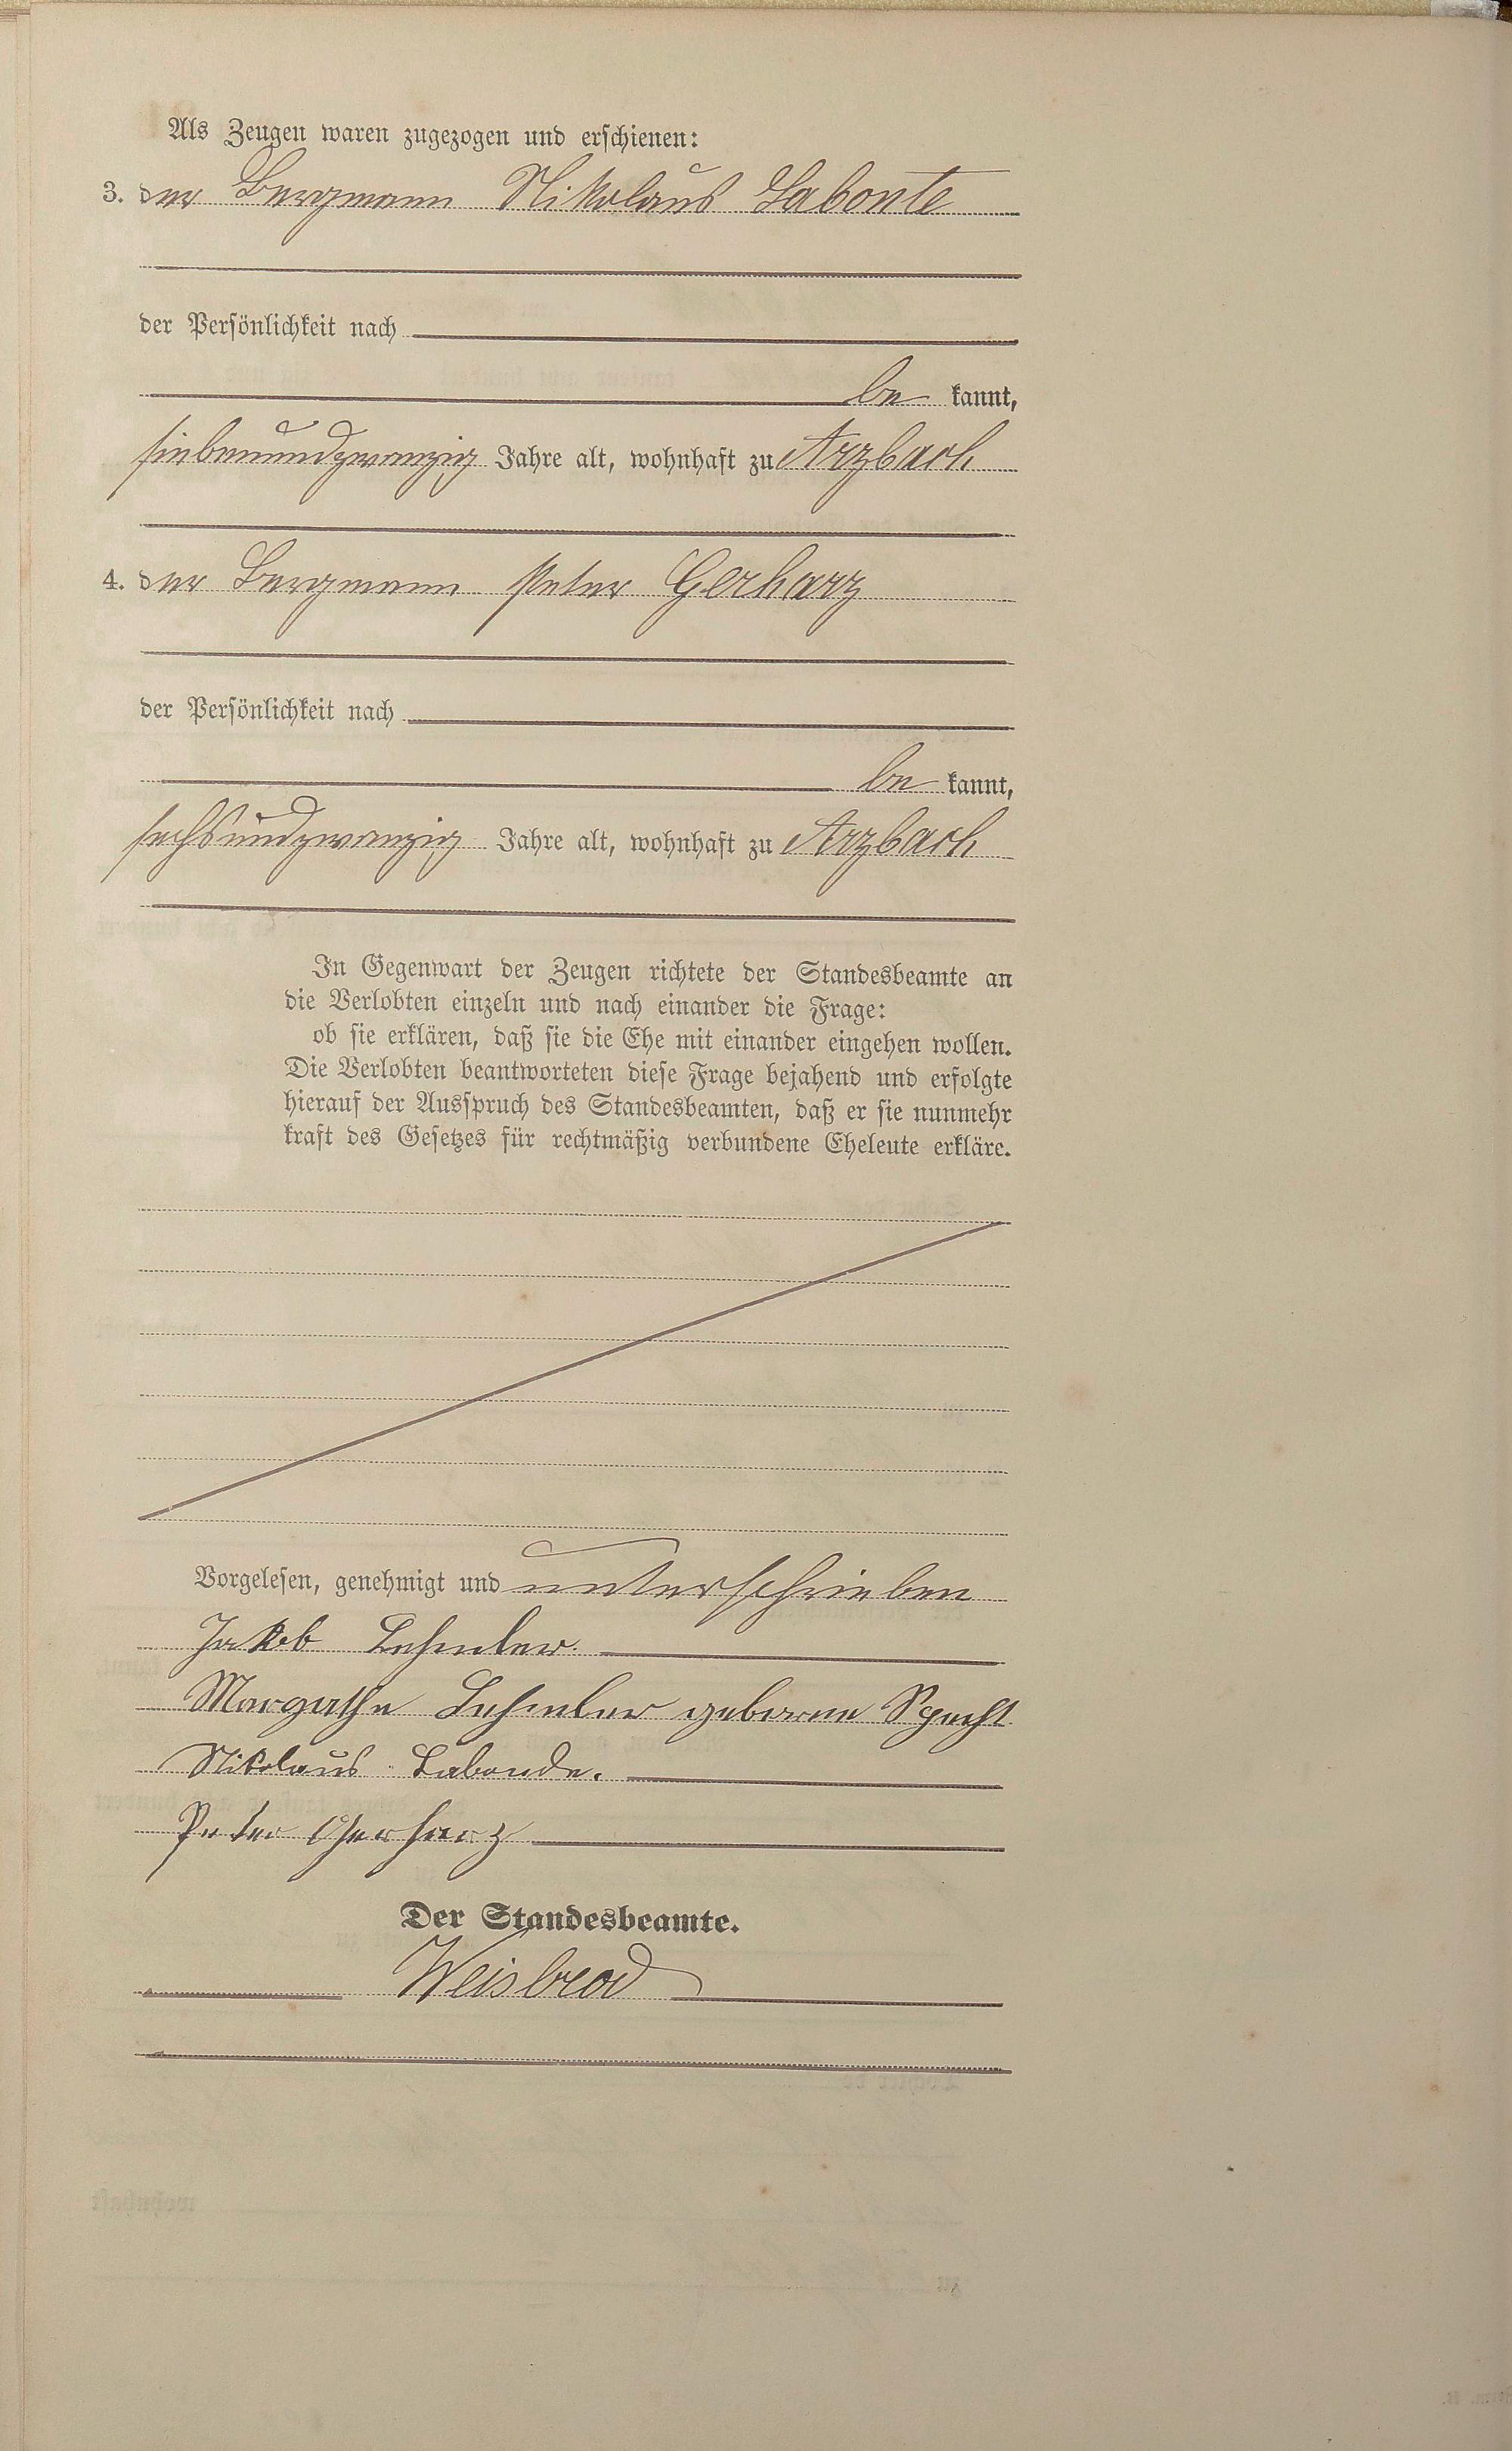 Als Zeugen waren zugezogen und erschienen:
3. der Bergmann Nikolaus Labonte
der Persönlichkeit nach
be kannt,
siebenundzwanzig Jahre alt, wohnhaft zu Arzbach
4. der Bergmann Peter Gerharz
der Persönlichkeit nach
be kannt,
sechsundzwanzig Jahre alt, wohnhaft zu Arzbach
In Gegenwart der Zeugen richtete der Standesbeamte an
die Verlobten einzeln und nach einander die Frage:
ob sie erklären, daß sie die Ehe mit einander eingehen wollen.
Die Verlobten beantworteten diese Frage bejahend und erfolgte
hierauf der Ausspruch des Standesbeamten, daß er sie nunmehr
kraft des Gesetzes für rechtmäßig verbundene Eheleute erkläre.
Vorgelesen, genehmigt und unterschrieben
Jakob Lehmler.
Margrethe Lehmler geborene Specht
Nikolaus Labonde.
Peter Gerharz
Der Standesbeamte.
Weisbrod